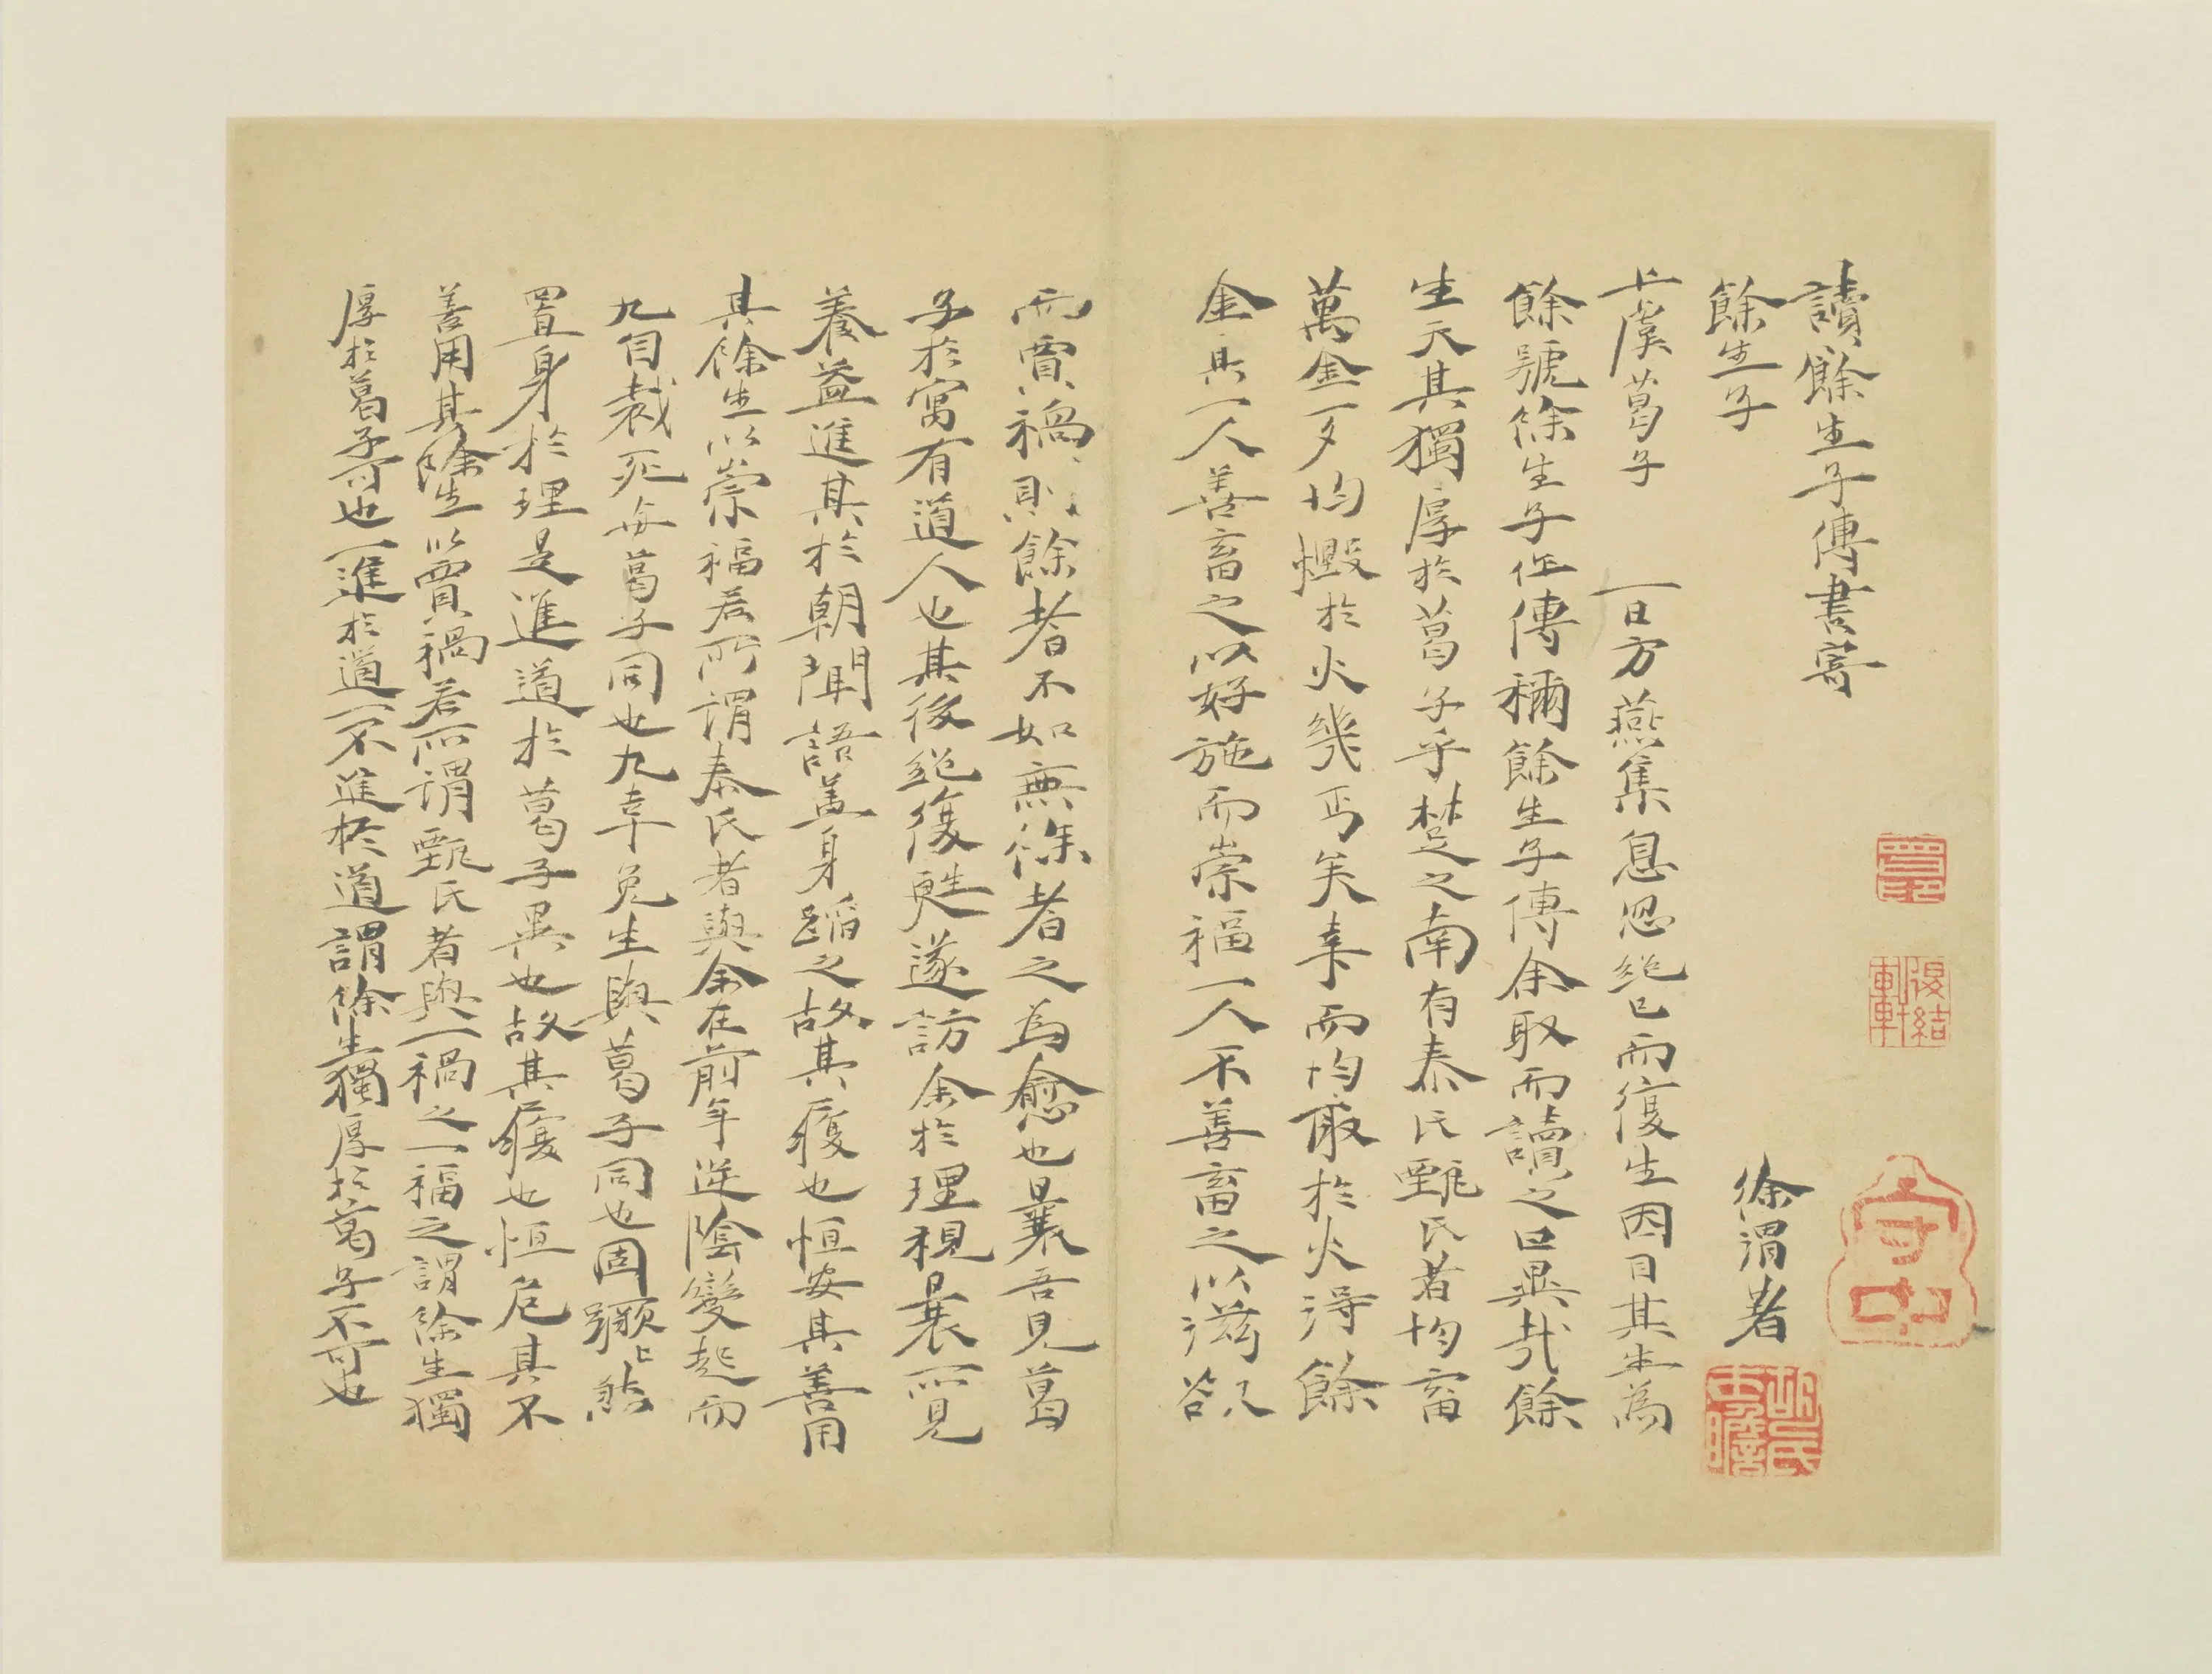 讀餘生子傳書寄
餘生子
徐渭著
上虞葛子 一日方燕集息忽絕已而復生因目其生為
餘號餘生子作傳稱餘生子傳余取而讀之曰異哉餘
生天其獨厚於葛子乎楚之南有秦氏甄氏者均畜
萬金一夕均燬於火幾丐矣幸而均取於火得餘
金其一人善畜之以好施而崇福一人不善畜之以滋欲
而賈禍則餘者不如無餘者之為愈也曩吾見葛
子於寓有道人也其後絕復甦遂訪余於理視曩所見
養益進其於朝聞語蓋身蹈之故其復也恒安其善用
其餘生以崇福若所謂秦氏者與余在前年逆陰變起而
九自裁死每葛子同也九幸免生與葛子同也固蹶然
置身於理是進道於葛子異也故其復也恒危其不
善用其餘生以賈禍若所謂甄氏者與一禍之一福之謂餘生獨
厚於葛子可也一進於道一不進於道謂餘生獨厚於葛子不可也
守中